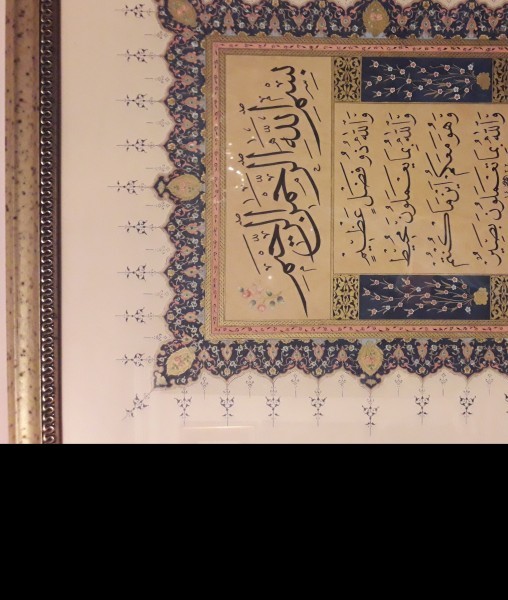 بِسْمِ اللهِ الرَّحْمٰنِ الرَّحِيمِ
وَاللهُ ذُو فَضْلٍ عَظِيمٍ
وَاللهُ بِمَا يَعْمَلُونَ مُحِيطٌ
وَهُوَ مَعَكُمْ أَيْنَمَا كُنْتُمْ
وَاللهُ بِمَا تَعْمَلُونَ بَصِيرٌ